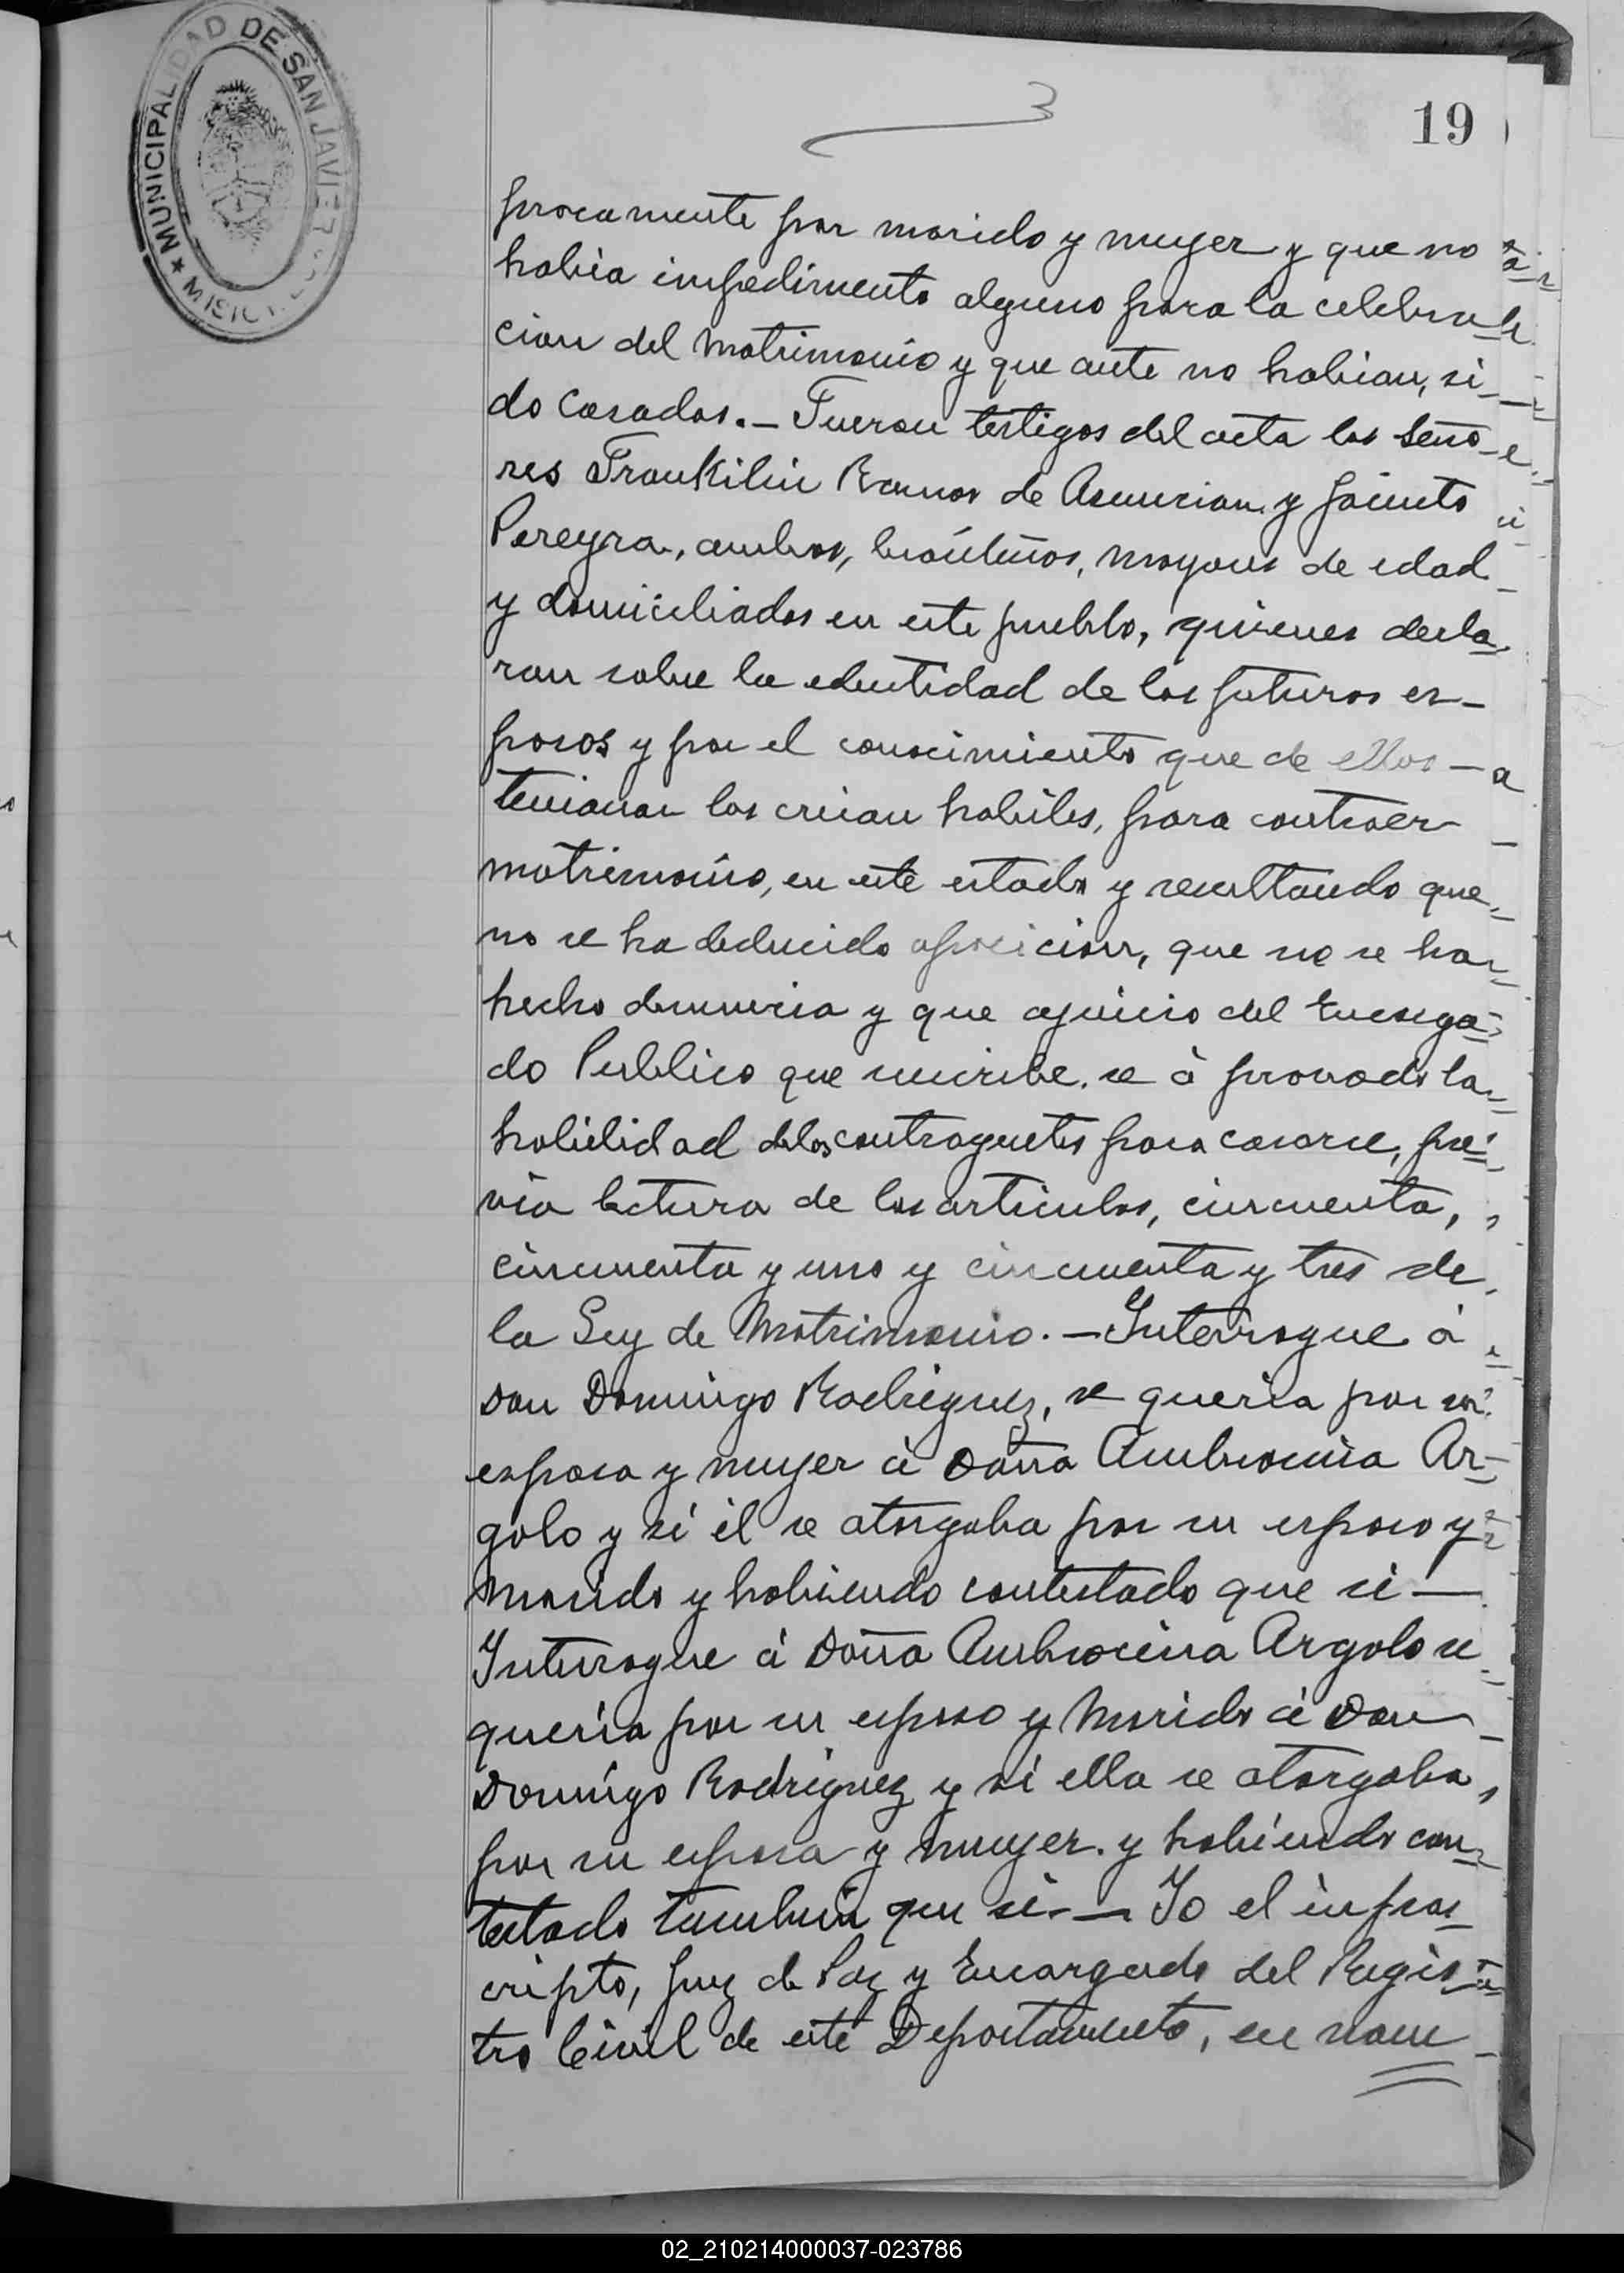 MUNICIPALIDAD DE SAN JAVIER
★ MISIONES
3
19
procamente por marido y mujer y que no
habia impedimento alguno para la celebra
cion del Matrimonio y que ante no habian, si
do Casados.— Fueron testigos del acta los Seño
res Frankilin Ramos de Asuncion y Jacinto
Pereyra, ambos, brasileños, mayores de edad
y domiciliados en este pueblo, quienes decla
ran sobre la edentidad de los futuros es-
posos y por el conocimiento que de ellos —
tenianan los creian habiles, para contraer
matrimonio, en este estado y resultando que
no se ha deducido oposicion, que no se ha
hecho denuncia y que ajuicio del Encarga
do Publico que suscribe. se á provado la
habilidad delos contraguetes para casarse, pre
via lectura de los articulos, cincuenta,
cincuenta y uno y cincuenta y tres de
la Ley de Matrimonio. — Interrogue á
Don Domingo Rodriguez, se queria por su
esposa y mujer á Doña Ambrocina Ar-
golo y si él se otorgaba por su esposo y
Marido y habiendo contestado que si —
Interrogue á Doña Ambrocina Argolo se
queria por su esposo y Marido á Don
Domingo Rodriguez y si ella se otorgaba
por su esposa y mujer. y habiendo con
testado tambien que si. — Yo el infras
cripto, Juez de Paz y Encargado del Regis
tro Civil de este Departamento, en nom
02_210214000037-023786